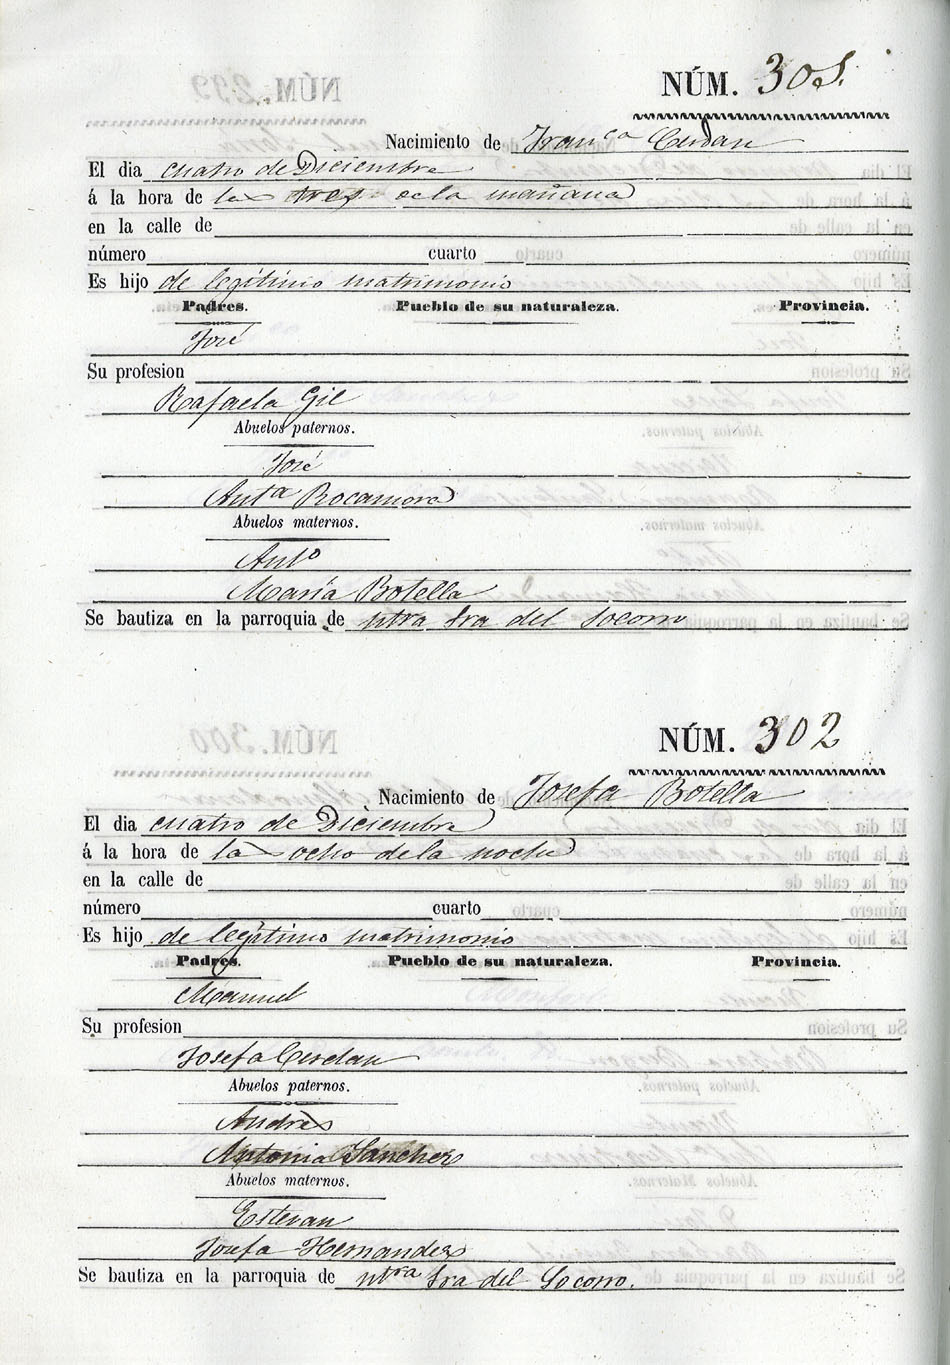 NÚM. 301.
Nacimiento de Fran.ca Cerdan
El dia cuatro de Diciembre
á la hora de las tres de la mañana
en la calle de
número cuarto
Es hijo de legitimo matrimonio
Padres. Pueblo de su naturaleza. Provincia.
José
Su profesion
Rafaela Gil
Abuelos paternos.
José
Anta Rocamora
Abuelos maternos.
Anto
María Botella
Se bautiza en la parroquia de ntra Sra del Socorro
NÚM. 302
Nacimiento de Josefa Botella
El dia cuatro de Diciembre
á la hora de las ocho de la noche
en la calle de
número cuarto
Es hijo de legitimo matrimonio
Padres. Pueblo de su naturaleza. Provincia.
Manuel
Su profesion
Josefa Cerdan
Abuelos paternos.
Andrès
Antonia Sánchez
Abuelos maternos.
Estevan
Josefa Hernandez
Se bautiza en la parroquia de ntra Sra del Socorro.